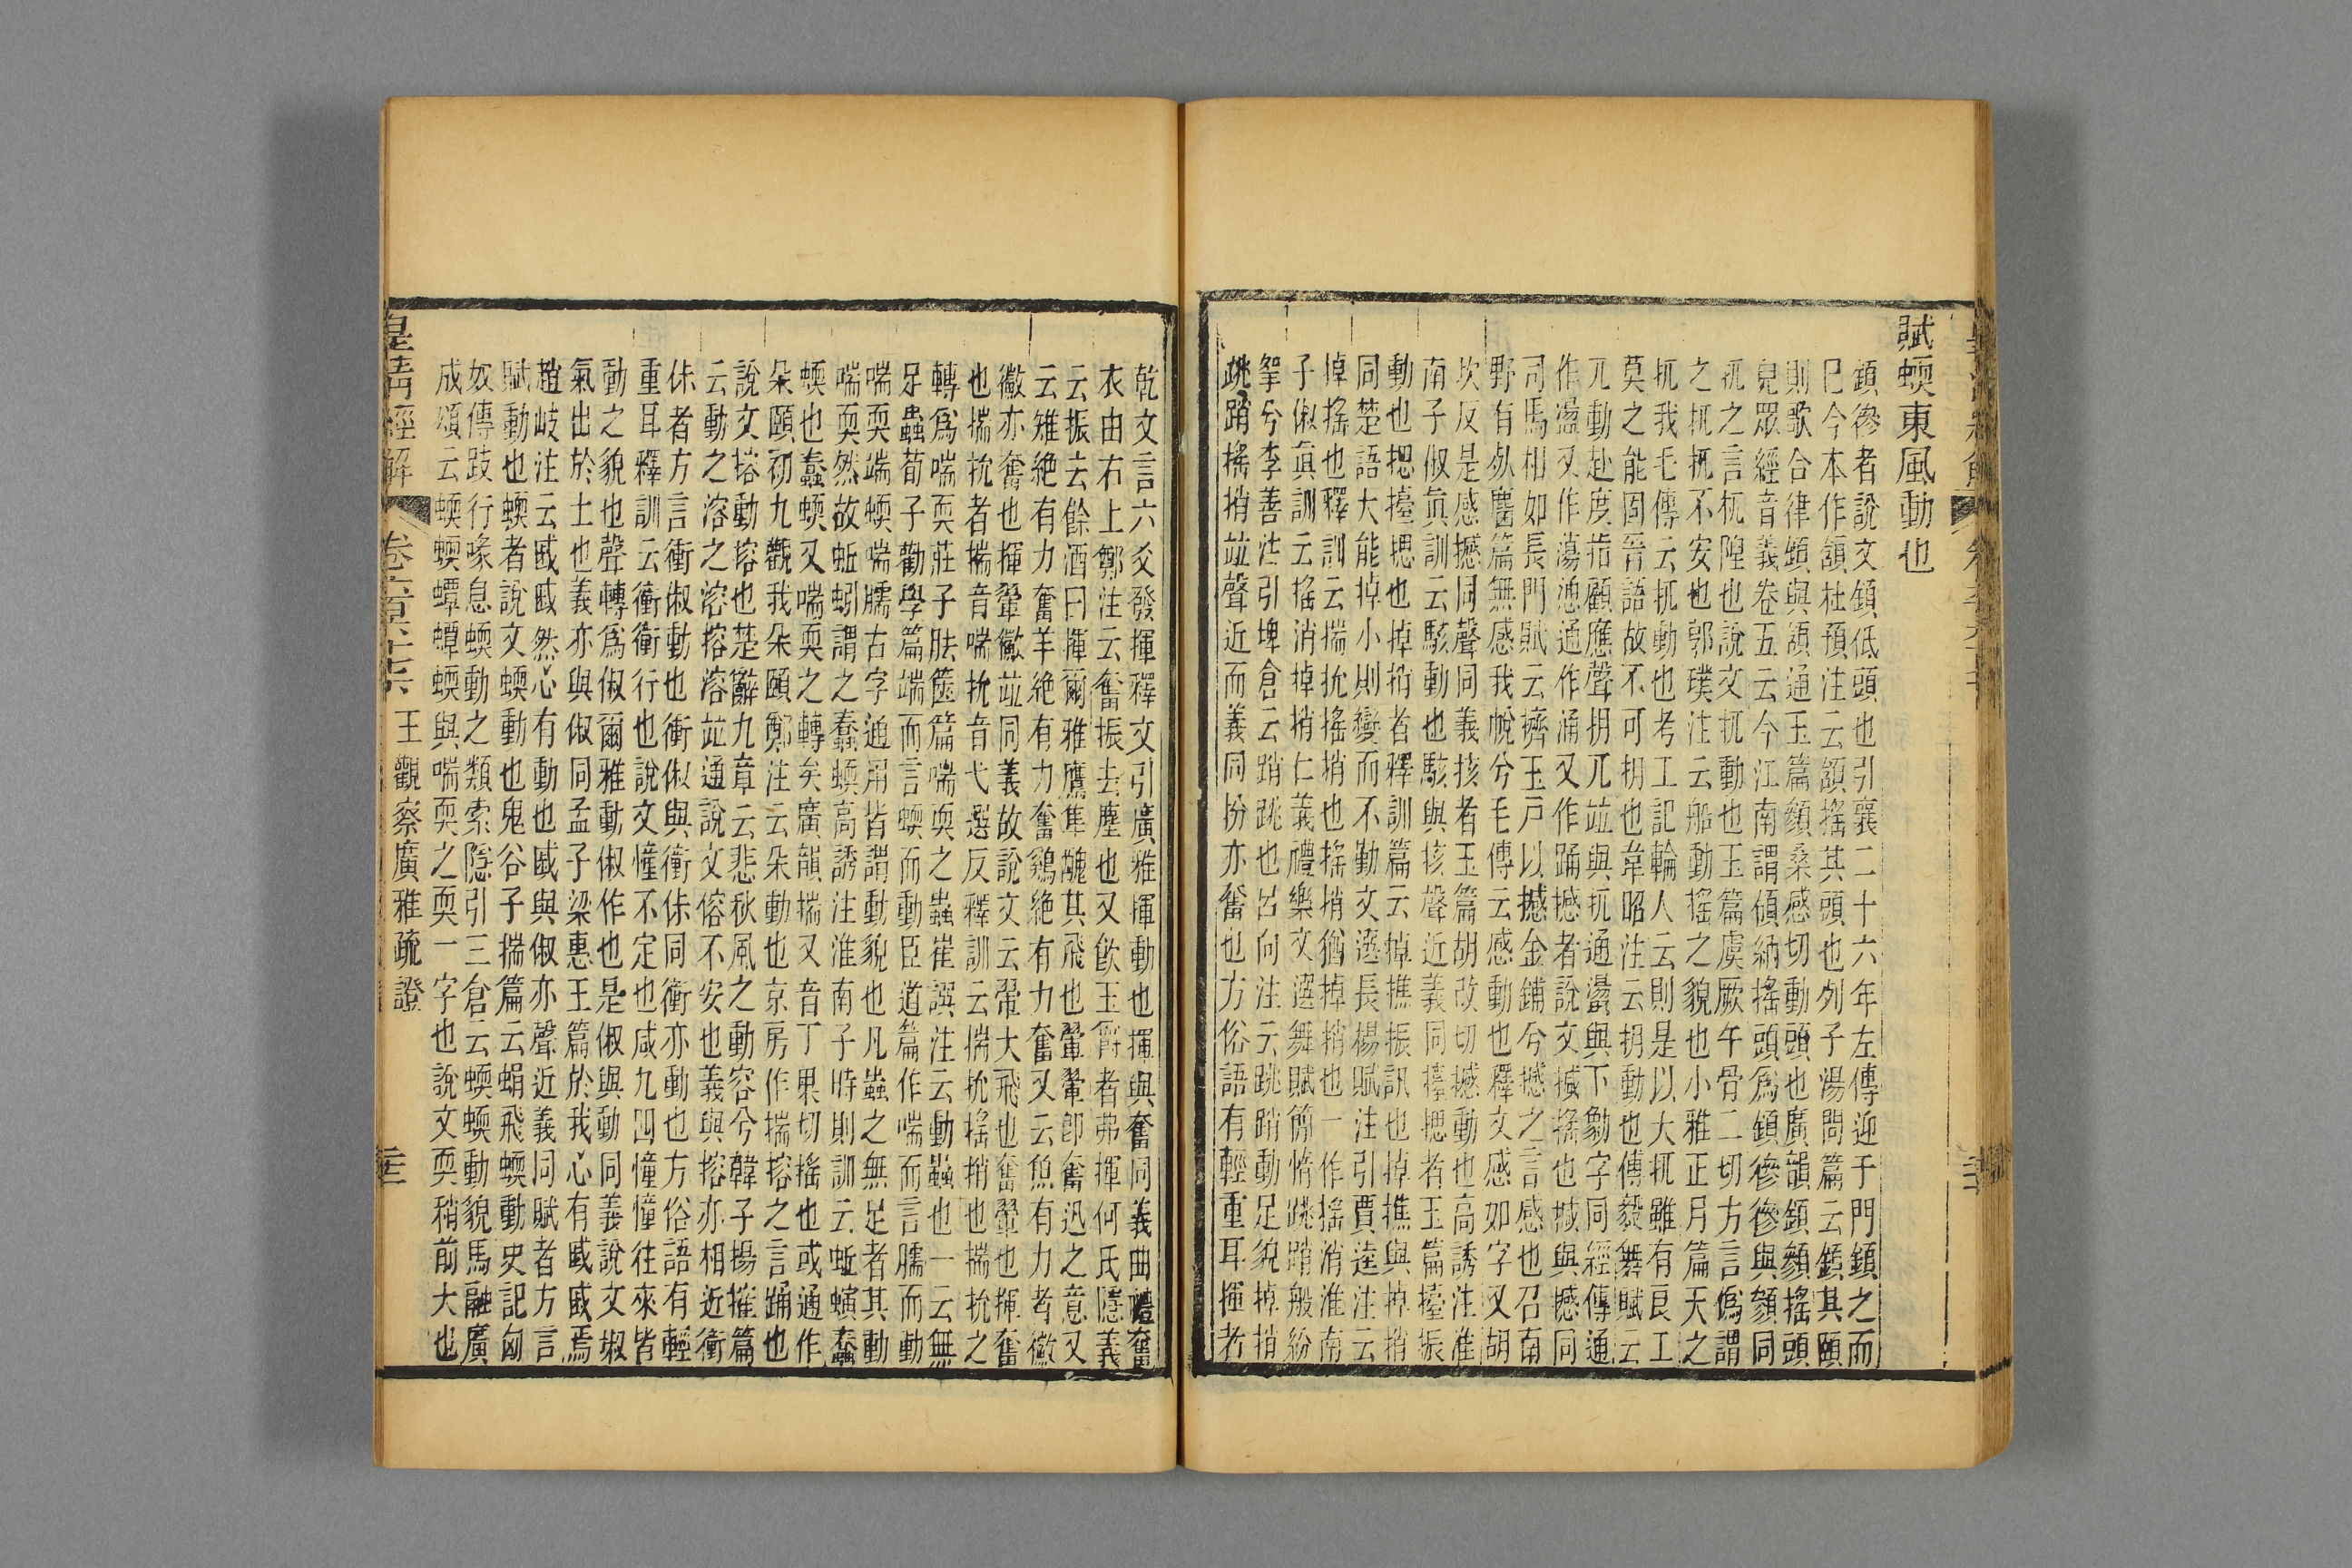 賦蝡東風動也
顉㣊者說文顉低頭也引襄二十六年左傳迎于門顉之而
巳今本作頷杜預注云頷搖其頭也列子湯問篇云顉其頤
則歌合律顉與頷通玉篇顉桑感切動頭也廣韻顉顉搖頭
皃眾經音義卷五云今江南謂傾納搖頭爲顉㣊㣊與顉同
扤之言杌隉也說文扤動也玉篇虞厥午骨二切方言僞謂
之扤扤不安也郭璞注云船動搖之貌也小雅正月篇天之
扤我毛傳云扤動也考工記輪人云則是以大扤雖有良工
莫之能固晉語故不可抈也韋昭注云抈動也傅毅舞賦云
兀動赴度指顧應聲抈兀竝與扤通瀁與下勨字同經傳通
作瀁又作蕩慂通作涌又作踊撼者說文搣搖也搣與撼同
司馬相如長門賦云擠玉戶以撼金鋪兮撼之言感也召南
野有死麕篇無感我帨兮毛傳云感動也釋文感如字又胡
坎反是感撼同聲同義挍者玉篇胡改切撼動也高誘注淮
南子俶眞訓云駭動也駭與挍聲近義同㩉揌者玉篇㩉振
動也揌㩉揌也掉捎者釋訓篇云掉撨振訊也掉撨與掉捎
同楚語大能掉小則變而不勤文選長楊賦注引賈逵注云
掉搖也釋訓云揣抁搖捎也搖捎猶掉捎也一作搖消淮南
子俶眞訓云搖消掉捎仁義禮樂文選舞賦簡惰跳踃般紛
挐兮李善注引埤倉云踃跳也呂向注云跳踃動足貌掉捎
跳踃搖捎竝聲近而義同扮亦奮也方俗語有輕重耳揮者
乾文言六爻發揮釋文引廣雅揮動也揮與奮同義曲禮奮
衣由右上鄭注云奮振去塵也又飲玉爵者弗揮何氏隱義
云振去餘酒曰揮爾雅鷹隼醜其飛也翬翬卽奮迅之意又
云雉絕有力奮羊絕有力奮鷄絕有力奮又云魚有力者徽
徽亦奮也揮翬徽竝同義故說文云翬大飛也奮翬也揮奮
也揣抁者揣音喘抁音弋選反釋訓云揣抁搖捎也揣抁之
轉爲喘耎莊子胠篋篇喘耎之蟲崔譔注云動蟲也一云無
足蟲荀子勸學篇端而言蝡而動臣道篇作喘而言臑而動
喘耎端蝡喘臑古字通用皆謂動貌也凡蟲之無足者其動
喘耎然故蚯蚓謂之蠢蝡高誘注淮南子時則訓云蚯螾蠢
蝡也蠢蝡又喘耎之轉矣廣韻揣又音丁果切搖也或通作
朵頤初九觀我朵頤鄭注云朵動也京房作揣搈之言踊也
說文搈動搈也楚辭九章云悲秋風之動容兮韓子揚搉篇
云動之溶之溶搈溶竝通說文㣑不安也義與搈亦相近衝
㑣者方言衝俶動也衝俶與衝㑣同衝亦動也方俗語有輕
重耳釋訓云衝衝行也說文憧不定也咸九四憧憧往來皆
動之貌也聲轉爲俶爾雅動俶作也是俶與動同義說文埱
氣出於土也義亦與俶同孟子梁惠王篇於我心有戚戚焉
趙岐注云戚戚然心有動也戚與俶亦聲近義同賦者方言
賦動也蝡者說文蝡動也鬼谷子揣篇云蜎飛蝡動史記匈
奴傳跂行喙息蝡動之類索隱引三倉云蝡蝡動貌馬融廣
成頌云蝡蝡蟫蟫蝡與喘耎之耎一字也說文耎稍前大也
皇淸經解 卷六百六十七 王觀察廣雅疏證 三